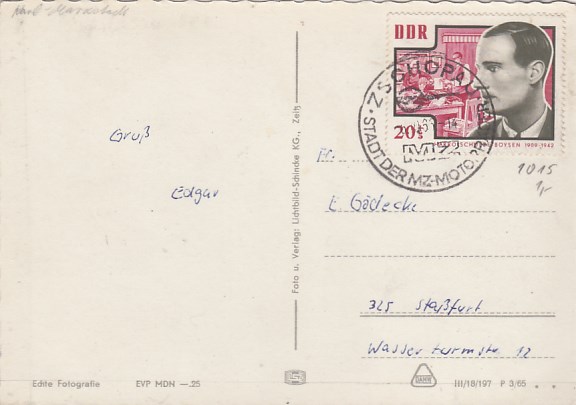 Karl-Marx-Stadt
DDR
20
BOYSEN 1909-1942
ZSCHOPAU
STADT DER MZ-MOTORRÄDER
MZ
Gruß
Edgar
Foto u. Verlag: Lichtbild-Schincke KG., Zeitz
Fr.
1015
E. Gödecke
325 Staßfurt
Wasserturmstr. 12
Echte Fotografie
EVP MDN —.25
III/18/197 P 3/65